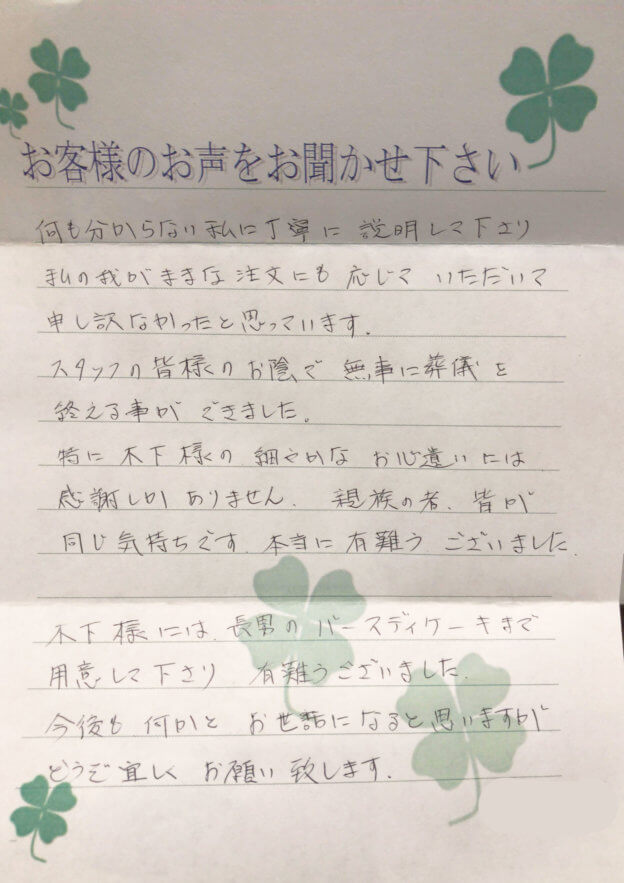 お客様のお声をお聞かせ下さい
何も分からない私に丁寧に 説明して下さり
私の我がままな注文にも 応じて いただいて
申し訳なかったと思っています。
スタッフの皆様のお陰で 無事に葬儀を
終える事が できました。
特に 木下様の 細やかな お心遣いには
感謝しかありません。 親族の者、皆が
同じ気持ちです。本当に有難う ございました。
木下様には、長男のバースディケーキまで
用意して下さり 有難うございました。
今後も 何かと お世話になると思いますが
どうぞ宜しく お願い致します。